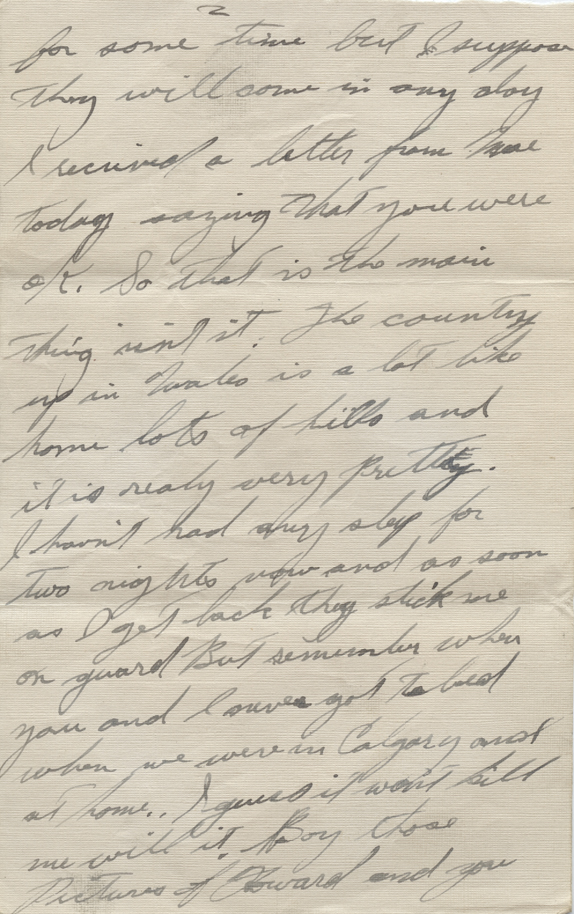 2
for some time but I suppose
they will come in any day
I received a letter from
today saying that you were
ok. So that is the main
thing isn't it. The country
up in Wales is a lot like
home lots of hills and
it is realy very pretty.
I havn't had any sleep for
two nights now and as soon
as I get back they stick me
on guard But remember when
you and I never got to bed
when we were in Calgary and
at home.. I guess it won't kill
me will it. Boy those
Pictures of Howard and you